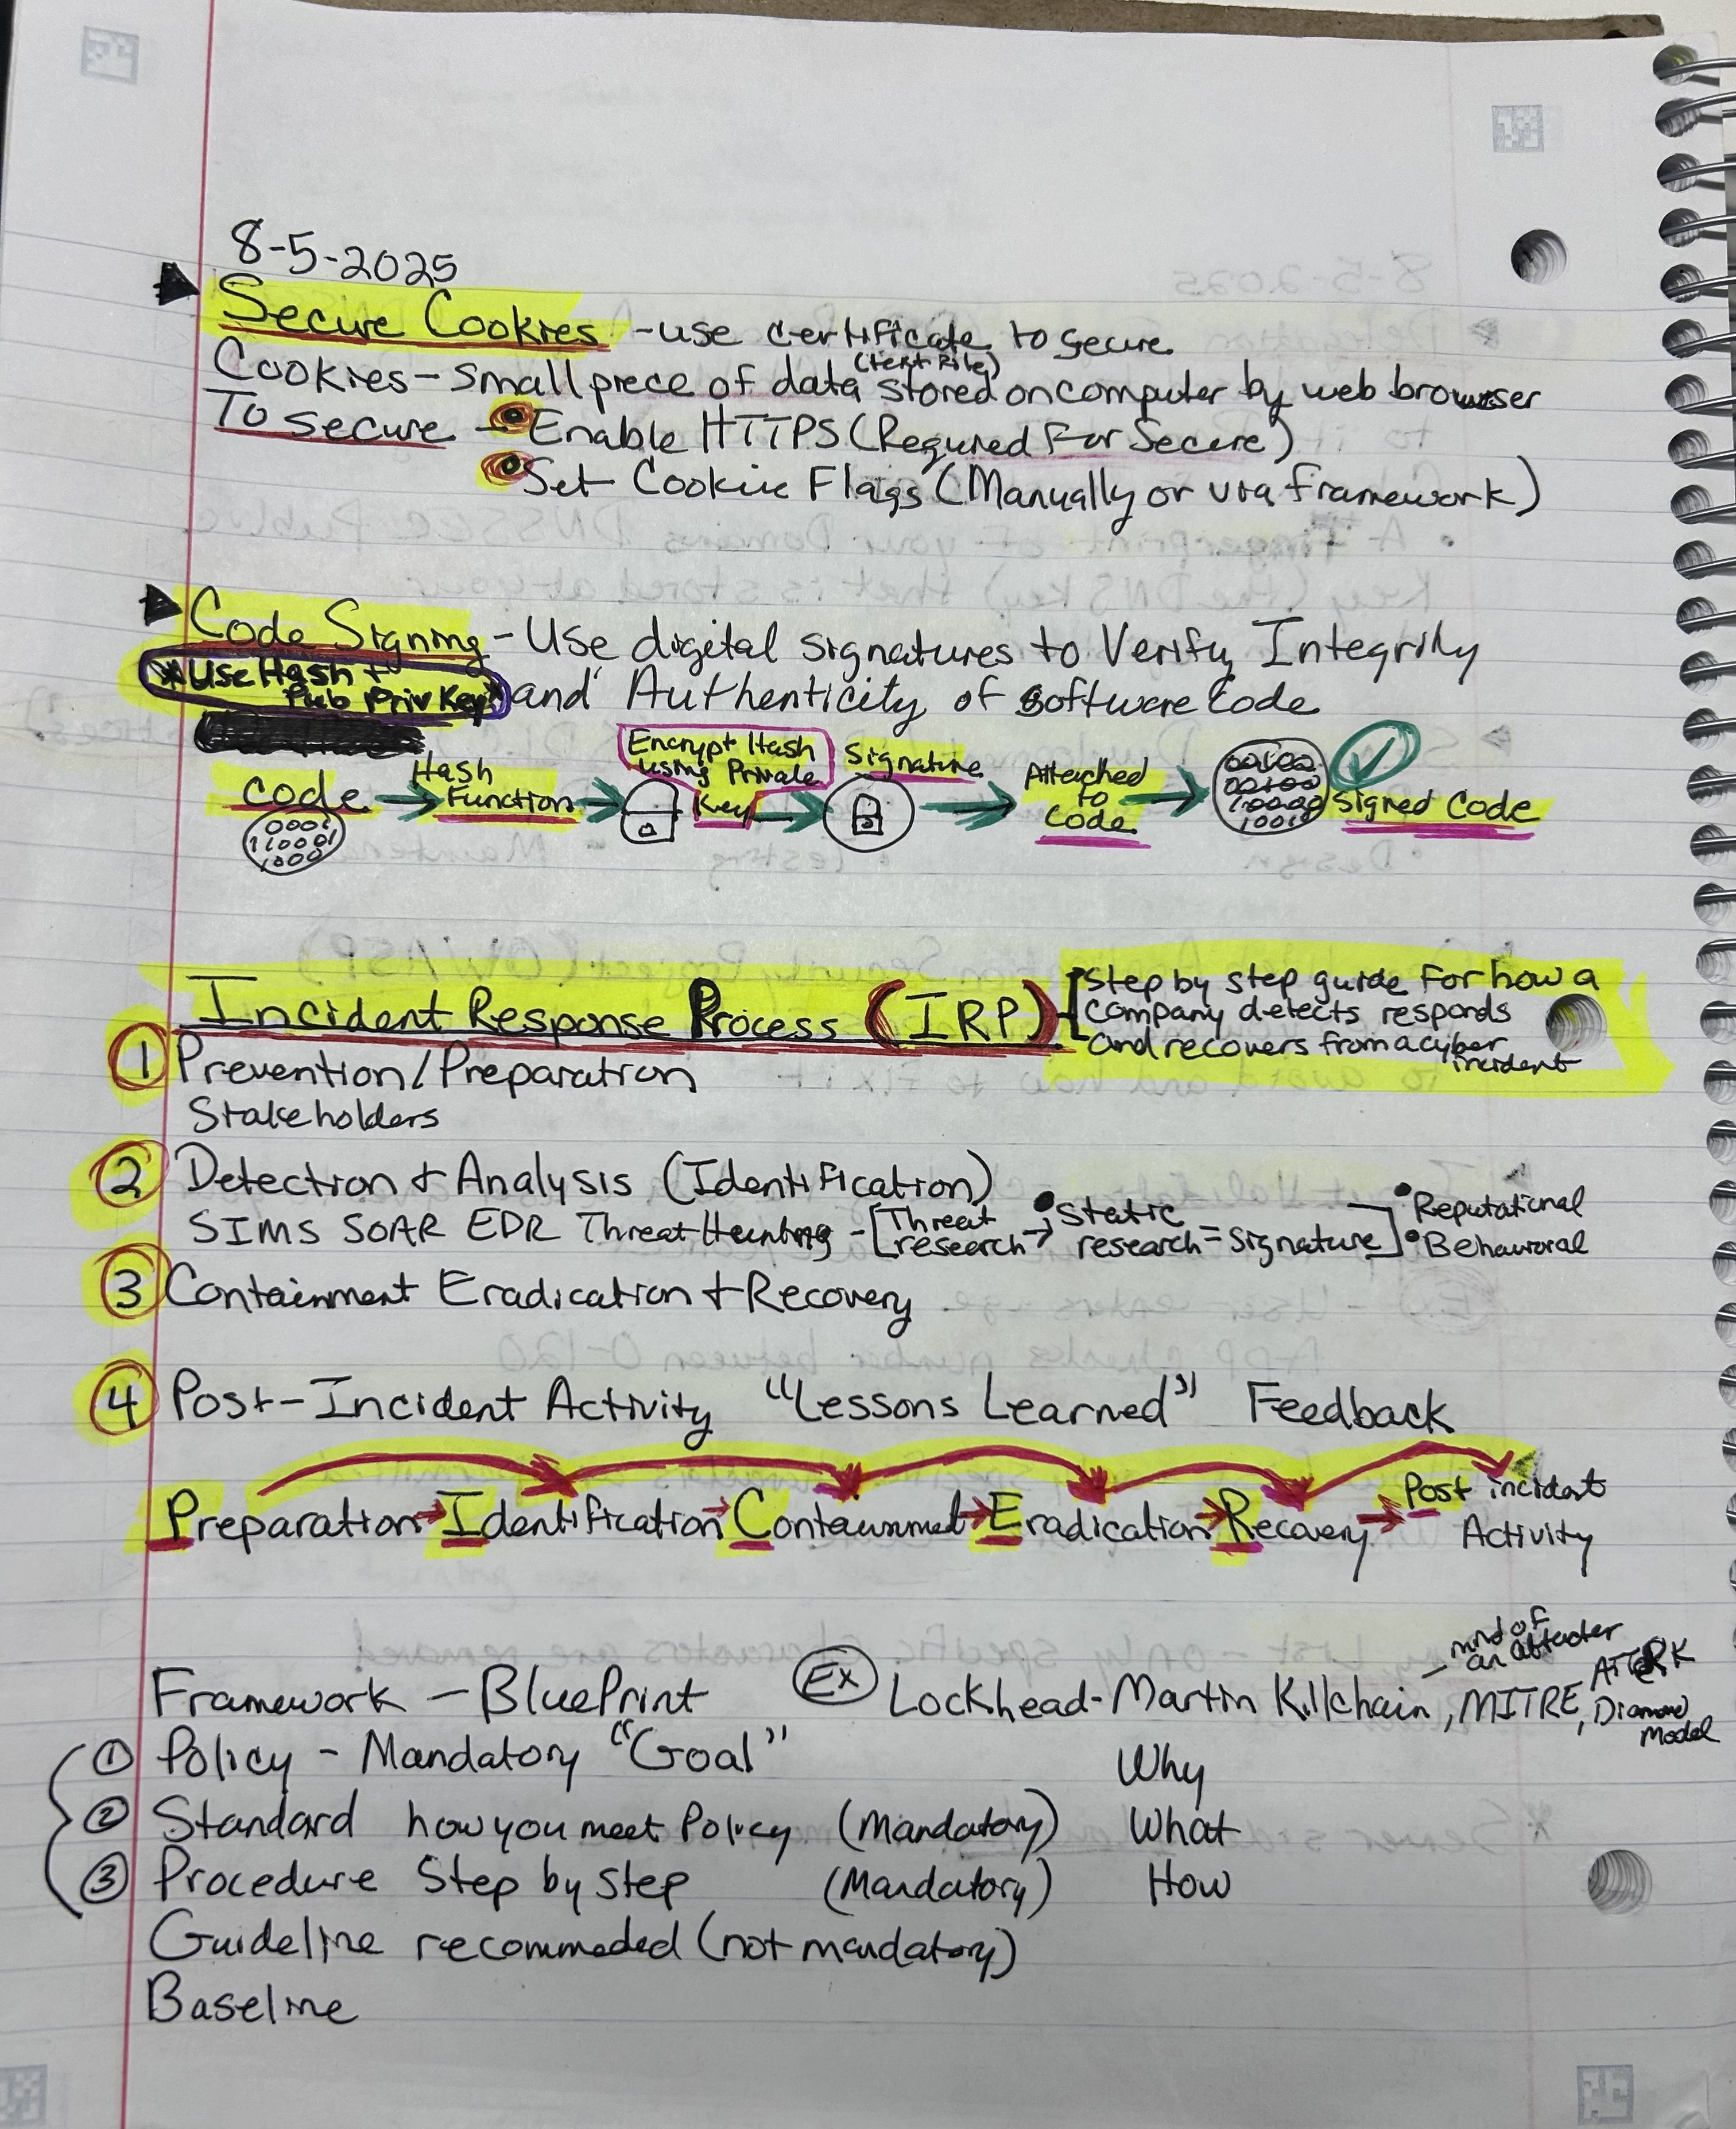 8-5-2025
Secure Cookies - use certificate to secure
Cookies - small piece of data (text file) stored on computer by web browser
To secure - • Enable HTTPS (Required For Secure)
• Set Cookie Flags (Manually or via framework)
Code Signing - Use digital signatures to Verify Integrity
* Use Hash +
Pub Priv Key * and Authenticity of Software Code
Code → Hash Function → Encrypt Hash using Private Key → Signature → Attached to Code → Signed Code
0001
110001
1000
00100
00100
10000
10010
Incident Response Process (IRP) - [Step by step guide For how a
company detects responds
and recovers from a cyber
incident
① Prevention/Preparation
Stakeholders
② Detection + Analysis (Identification)
SIMS SOAR EDR Threat Hunting - [Threat research → • Static research = Signature] • Reputational
• Behavioral
③ Containment Eradication + Recovery
④ Post-Incident Activity "Lessons Learned" Feedback
Preparation → Identification → Containment → Eradication → Recovery → Post incident
Activity
Framework - BluePrint Ex Lockhead-Martin Killchain - mnd of an attacker, MITRE ATT&CK, Diamond Model
① Policy - Mandatory "Goal" Why
② Standard how you meet Policy (Mandatory) What
③ Procedure Step by Step (Mandatory) How
Guideline recommeded (not mandatory)
Baseline